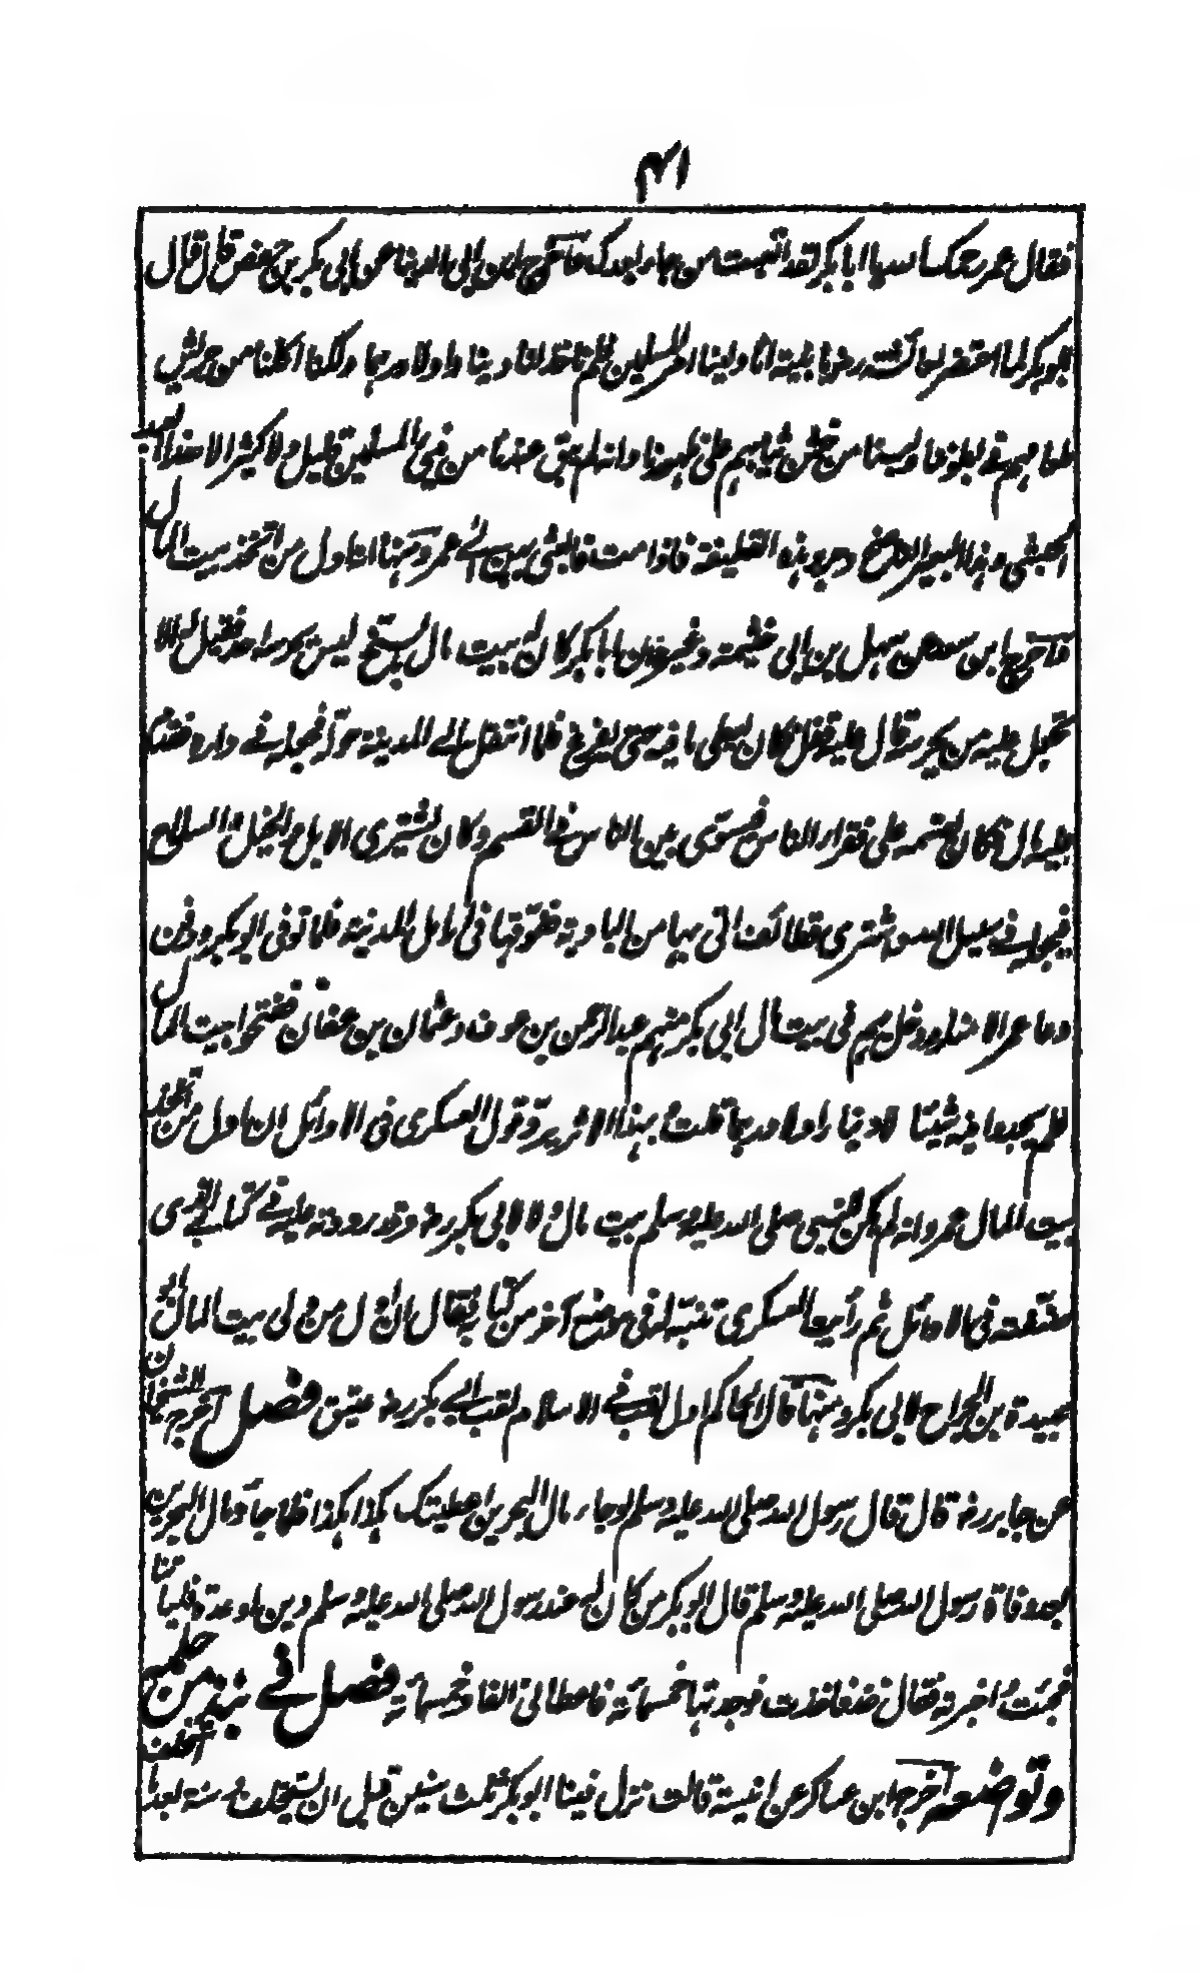 ٤١
فقال عمر رحمك الله يا ابا بكر لقد اتعبت من جاء بعدك واخرج ابن ابى الدنيا عن ابى بكر بن حفص قال قال
ابو بكر لما احتضر لعائشة رض يا بنية انا ولينا امر المسلمين فلم ناخذ لنا دينارا ولا درهما ولكنا اكلنا من جريش
طعامهم فى بطوننا ولبسنا من خشن ثيابهم على ظهورنا وانه لم يبق عندنا من فىء المسلمين قليل ولا كثير الا هذا العبد
الحبشى وهذا البعير الناضح وجرد هذه القطيفة فاذا مت فابعثى بهن الى عمر ومنها انه اول من اتخذ بيت المال
واخرج ابن سعد عن سهل بن ابى خيثمة وغيره ان ابا بكر كان له بيت مال بالسنح ليس يحرسه احد فقيل له الا
تجعل عليه من يحرسه قال عليه قفل فكان يعطى ما فيه حتى يفرغ فلما انتقل الى المدينة حوله فجعله فى داره فقدم
عليه مال فكان يقسمه على فقراء الناس فيسوى بين الناس فى القسم وكان يشترى الابل والخيل والسلاح
فيجعله فى سبيل الله واشترى قطائف اتى بها من البادية ففرقها فى ارامل المدينة فلما توفى ابو بكر ودفن
دعا عمر الامناء ودخل بهم فى بيت مال ابى بكر منهم عبد الرحمن بن عوف وعثمان بن عفان ففتحوا بيت المال
فلم يجدوا فيه شيئا لا دينارا ولا درهما قلت وبهذا الاثر يرد قول العسكرى فى الاوائل ان اول من اتخذ
بيت المال عمر وانه لم يكن للنبى صلى الله عليه وسلم بيت مال ولا لابى بكر رض وقد رددته عليه فى كتابى الذى
صنفته فى الاوائل ثم رأيت العسكرى تنبه له فى موضع آخر من كتابه فقال ان اول من ولى بيت المال ابو
عبيدة بن الجراح لابى بكر ومنها قال الحاكم اول لقب فى الاسلام لقب ابى بكر رض عتيق فصل اخرج الشيخان
عن جابر رض قال قال رسول الله صلى الله عليه وسلم لو جاء مال البحرين اعطيتك هكذا هكذا فلما جاء مال البحرين
بعد وفاة رسول الله صلى الله عليه وسلم قال ابو بكر من كان له عند رسول الله صلى الله عليه وسلم دين او عدة فلياتنا
فجئت واخبرته فقال خذ فاخذت فوجدتها خمسمائة فاعطانى الفا وخمسمائة فصل فى نبذ من حلمه
وتواضعه اخرج ابن عساكر عن انيسة قالت نزل فينا ابو بكر ثلث سنين قبل ان يستخلف وسنة بعد ما استخلف